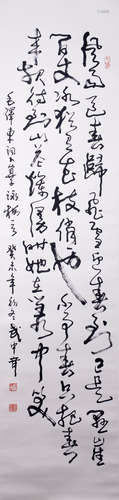 風雨送春歸飛雪迎春到已是懸崖
百丈冰猶有花枝俏俏也不爭春只把春
來報待到山花爛漫時她在叢中笑
毛澤東詞卜算子詠梅 癸未年初冬武中奇